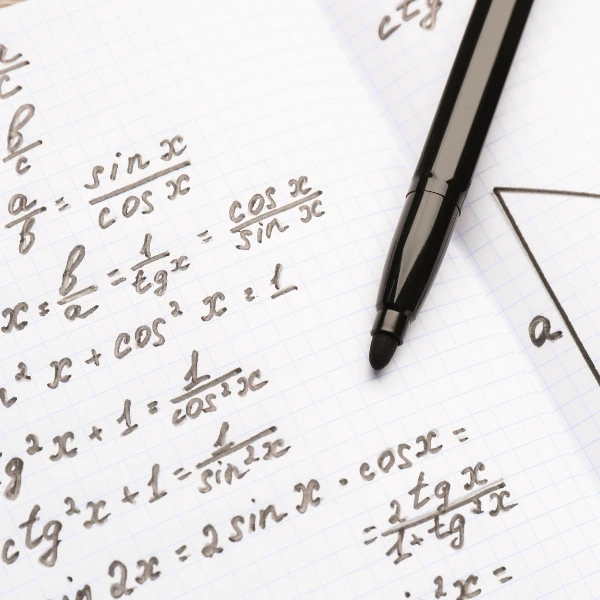 b/c
a/b = sin x/cos x
x = b/a = 1/tg x = cos x/sin x
² x + cos² x = 1
g² x + 1 = 1/cos² x
ctg² x + 1 = 1/sin² x
in 2x = 2 sin x · cos x =
= 2 tg x/1+tg² x
² x =
ctg
a